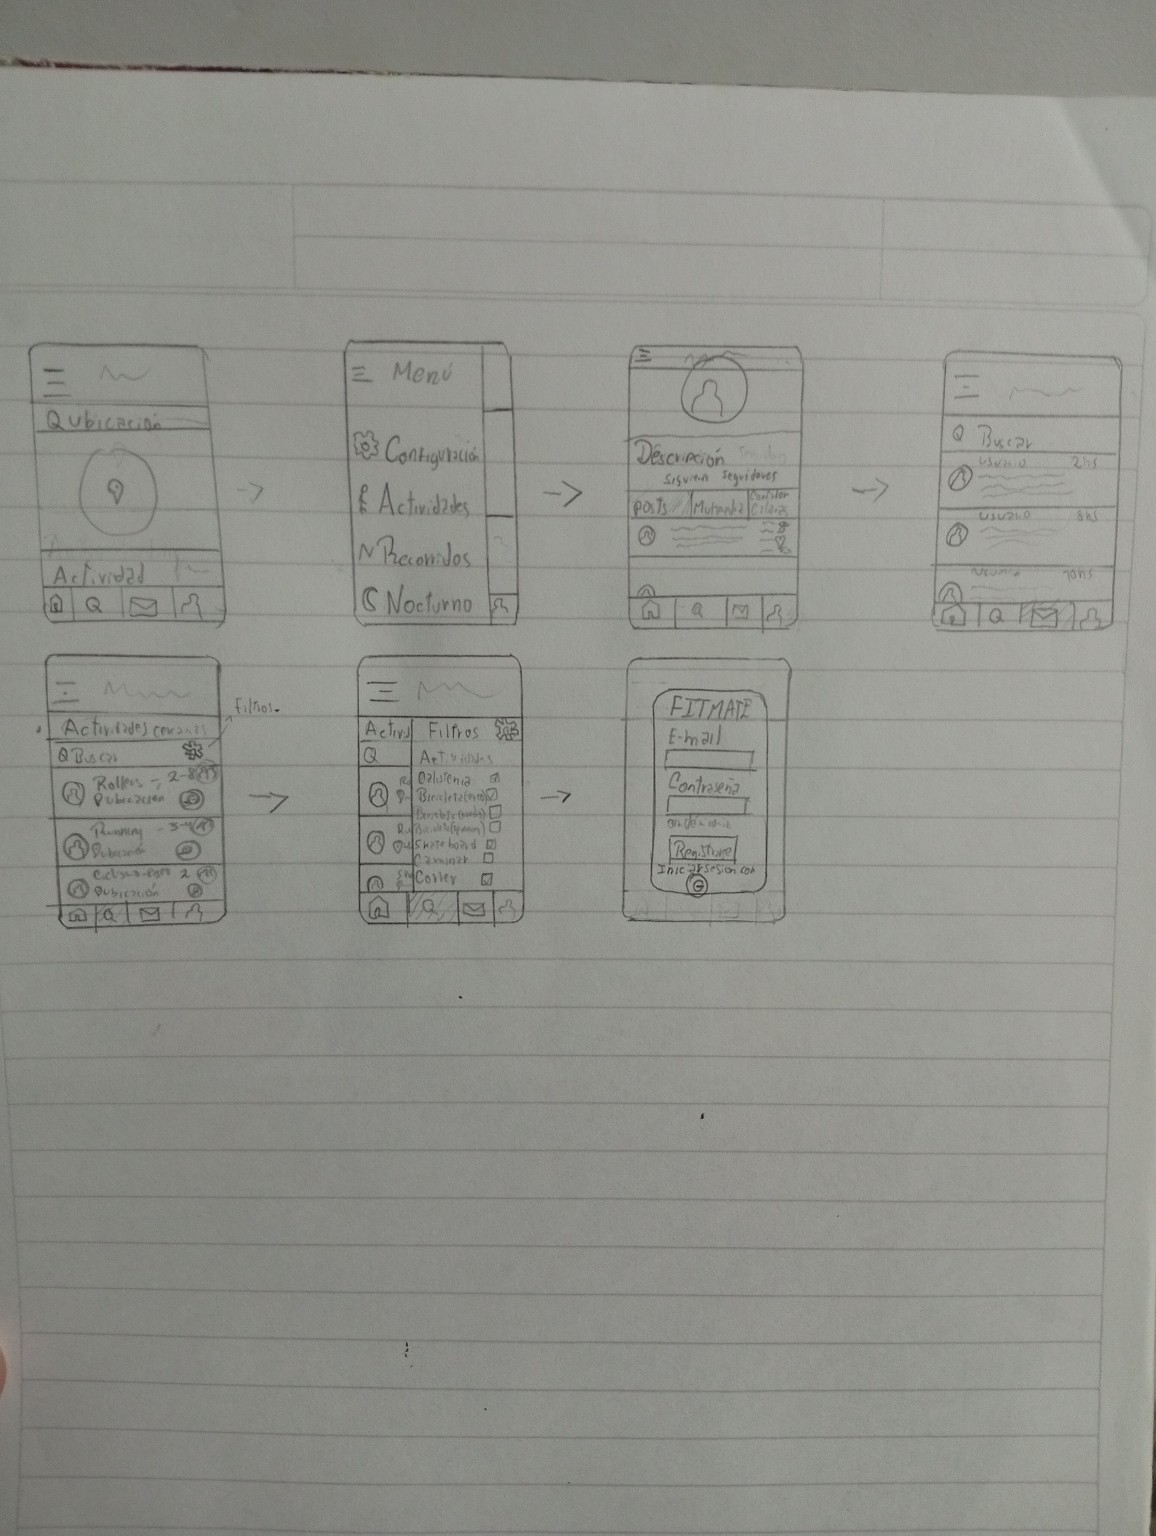 ubicación
Actividad
Menú
Configuración
Actividades
Recorridos
Nocturno
Descripción
Siguiendo Seguidores
Posts
Buscar
usuario 2hs
usuario 8hs
10hs
filtros.
Actividades cercanas
Buscar
Rollers - 2-8
ubicación
Running - 3-4
ubicación
2
ubicación
Activi Filtros
Actividades
Calistenia
Bicicleta
Bicicleta
Bicicleta
Skateboard
Caminar
Correr
FITMATE
E-mail
Contraseña
Registrate
Iniciar sesion con
G